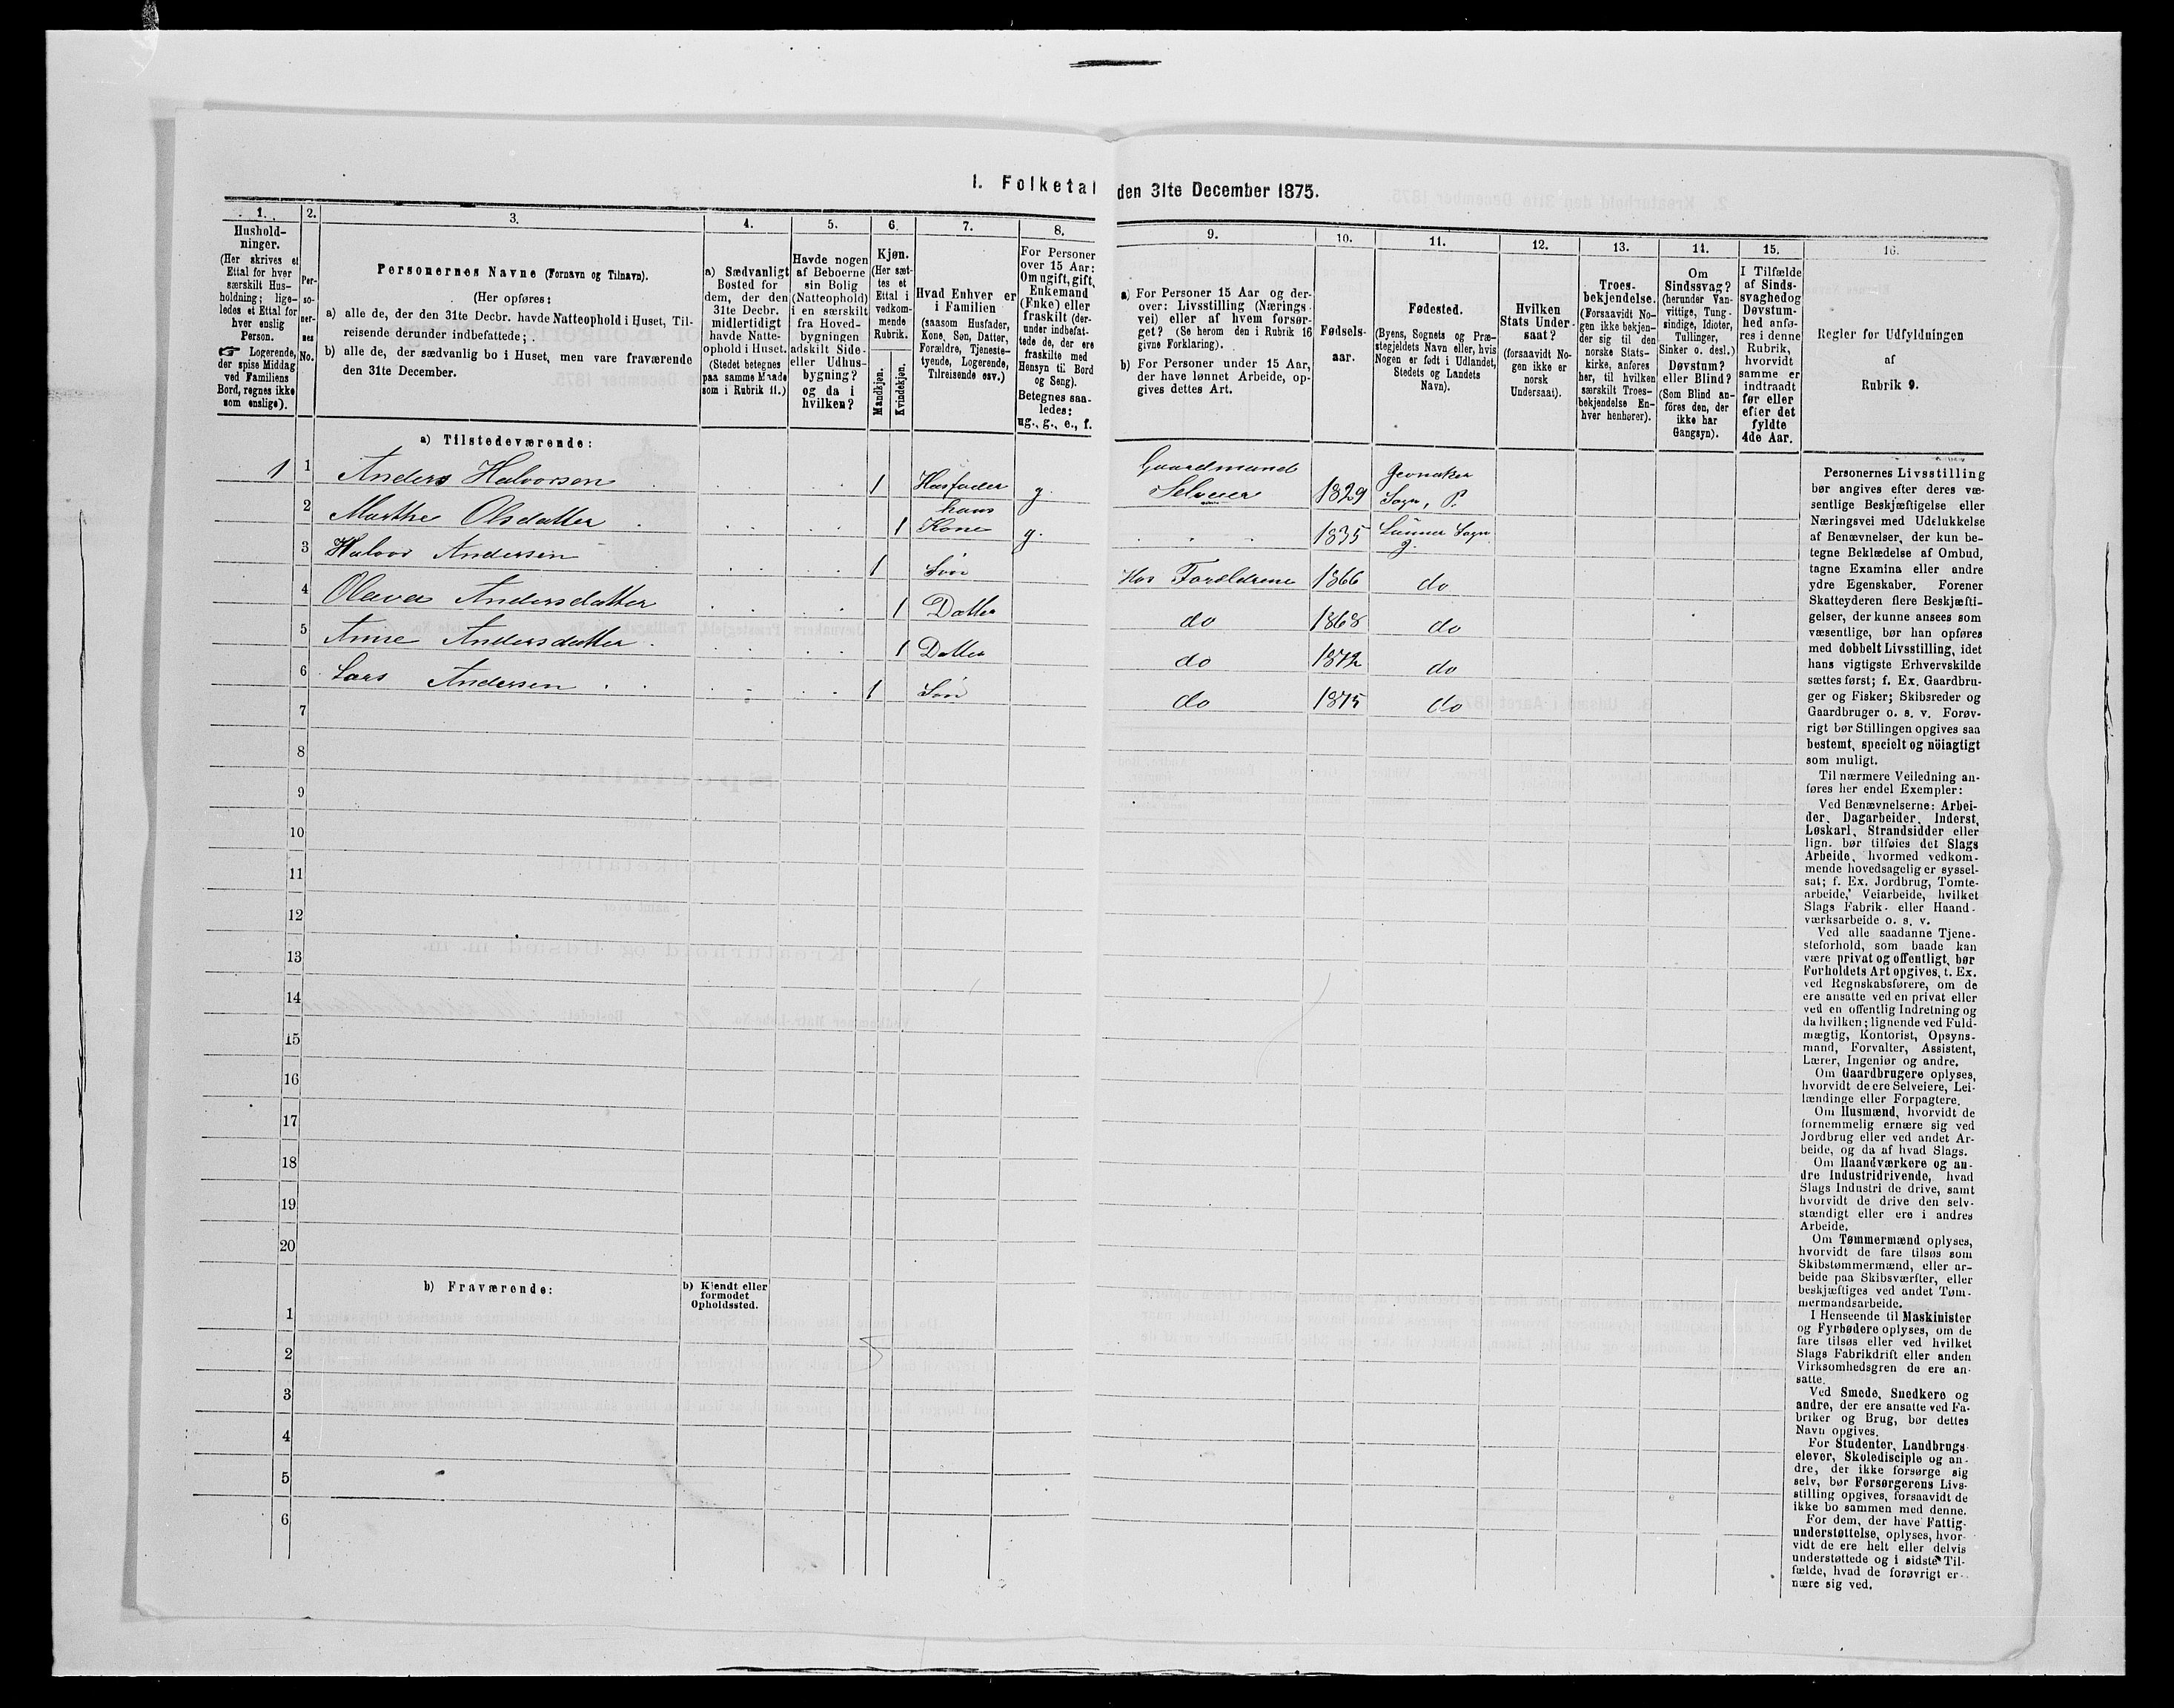 1. Folketal den 31te December 1875.
1.
Hushold-
ninger.
(Her skrives et
Ettal for hver
særskilt Hus-
holdning; lige-
ledes et Ettal for
hver enslig
Person.
☞ Logerende,
der spise Middag
ved Familiens
Bord, regnes ikke
som enslige).
2.
Per-
so-
ner-
nes
No.
3.
Personernes Navne (Fornavn og Tilnavn).
(Her opføres:
a) alle de, der den 31te Decbr. havde Natteophold i Huset, Til-
reisende derunder indbefattede;
b) alle de, der sædvanlig bo i Huset, men vare fraværende
den 31te December.
4.
a) Sædvanligt
Bosted for
dem, der den
31te Decbr.
midlertidigt
havde Natte-
ophold i Huset.
(Stedet betegnes
paa samme Maade
som i Rubrik 11.)
5.
Havde nogen
af Beboerne
sin Bolig
(Natteophold)
i en særskilt
fra Hoved-
bygningen
adskilt Side-
eller Udhus-
bygning?
og da i
hvilken?
6.
Kjøn.
(Her sæt-
tes et
Ettal i
vedkom-
mende
Rubrik.
Mandkjøn.
Kvindekjøn.
7.
Hvad Enhver er
i Familien
(saasom Husfader,
Kone, Søn, Datter,
Forældre, Tjeneste-
tyende, Logerende,
Tilreisende osv.)
8.
For Personer
over 15 Aar:
Om ugift, gift,
Enkemand
(Enke) eller
fraskilt (der-
under indbefat-
tede de, der ere
fraskilte med
Hensyn til Bord
og Seng).
Betegnes saa-
ledes:
ug., g., e., f.
9.
a) For Personer 15 Aar og der-
over: Livsstilling (Nærings-
vei) eller af hvem forsør-
get? (Se herom den i Rubrik 16
givne Forklaring).
b) For Personer under 15 Aar,
der have lønnet Arbeide, op-
gives dettes Art.
10.
Fødsels-
aar.
11.
Fødested.
(Byens, Sognets og Præ-
stegjeldets Navn eller, hvis
Nogen er født i Udlandet,
Stedets og Landets
Navn).
12.
Hvilken
Stats Under-
saat?
(forsaavidt No-
gen ikke er
norsk
Undersaat).
13.
Troes-
bekjendelse.
(Forsaavidt No-
gen ikke bekjen-
der sig til den
norske Stats-
kirke, anføres
her, til hvilken
særskilt Troes-
bekjendelse En-
hver henhører).
14.
Om
Sindssvag?
(herunder Van-
vittige, Tung-
sindige, Idioter,
Tullinger,
Sinker o. desl.)
Døvstum?
eller Blind?
(Som Blind an-
føres den, der
ikke har
Gangsyn).
15.
I Tilfælde
af Sinds-
svaghed og
Døvstum-
hed anfø-
res i denne
Rubrik,
hvorvidt
samme er
indtraadt
før eller
efter det
fyldte
4de Aar.
16.
Regler for Udfyldningen
af
Rubrik 9.
a) Tilstedeværende:
1 1 Anders Halvorsen 1 Husfader g. Gaardmand Selveier 1829 Jevnaker Sogn, P.
2 Marthe Olsdatter 1 hans Kone g. 1835 Lunner Sogn
3 Halvor Andersen 1 Søn Hos Forældrene 1866 do
4 Oleva Andersdatter 1 Datter do 1868 do
5 Anne Andersdatter 1 Datter do 1872 do
6 Lars Andersen 1 Søn do 1875 do
7
8
9
10
11
12
13
14
15
16
17
18
19
20
b) Fraværende:
b) Kjendt eller
formodet
Opholdssted.
1
2
3
4
5
6
Personernes Livsstilling
bør angives efter deres væ-
sentlige Beskjæftigelse eller
Næringsvei med Udelukkelse
af Benævnelser, der kun be-
tegne Beklædelse af Ombud,
tagne Examina eller andre
ydre Egenskaber. Forener
Skatteyderen flere Beskjæfti-
gelser, der kunne ansees som
væsentlige, bør han opføres
med dobbelt Livsstilling, idet
hans vigtigste Erhvervskilde
sættes først; f. Ex. Gaardbru-
ger og Fisker; Skibsreder og
Gaardbruger o. s. v. Forøv-
rigt bør Stillingen opgives saa
bestemt, specielt og nöiagtigt
som muligt.
Til nærmere Veiledning an-
føres her endel Exempler:
Ved Benævnelserne: Arbei-
der, Dagarbeider, Inderst,
Løskarl, Strandsidder eller
lign. bør tilføies det Slags
Arbeide, hvormed vedkom-
mende hovedsagelig er syssel-
sat; f. Ex. Jordbrug, Tomte-
arbeide, Veiarbeide, hvilket
Slags Fabrik- eller Haand-
værksarbeide o. s. v.
Ved alle saadanne Tjene-
steforhold, som baade kan
være privat og offentligt, bør
Forholdets Art opgives, t. Ex.
ved Regnskabsførere, om de
ere ansatte ved en privat eller
ved en offentlig Indretning og
da hvilken; lignende ved Fuld-
mægtig, Kontorist, Opsyns-
mand, Forvalter, Assistent,
Lærer, Ingeniør og andre.
Om Gaardbrugere oplyses,
hvorvidt de ere Selveiere, Lei-
lændinge eller Forpagtere.
Om Husmænd, hvorvidt de
fornemmelig ernære sig ved
Jordbrug eller ved andet Ar-
beide, og da af hvad Slags.
Om Haandværkere og an-
dre Industridrivende, hvad
Slags Industri de drive, samt
hvorvidt de drive den selv-
stændigt eller ere i andres
Arbeide.
Om Tømmermænd oplyses,
hvorvidt de fare tilsøs som
Skibstømmermænd, eller ar-
beide paa Skibsværfter, eller
beskjæftiges ved andet Tøm-
mermandsarbeide.
I Henseende til Maskinister
og Fyrbødere oplyses, om de
fare tilsøs eller ved hvilket
Slags Fabrikdrift eller anden
Virksomhedsgren de ere an-
satte.
Ved Smede, Snedkere og
andre, der ere ansatte ved Fa-
briker og Brug, bør dettes
Navn opgives.
For Studenter, Landbrugs-
elever, Skoledisciple og an-
dre, der ikke forsørge sig
selv, bør Forsørgerens Livs-
stilling opgives, forsaavidt de
ikke bo sammen med denne.
For dem, der have Fattig-
understøttelse, oplyses, hvor-
vidt de ere helt eller delvis
understøttede og i sidste Til-
fælde, hvad de forøvrigt er-
nære sig ved.